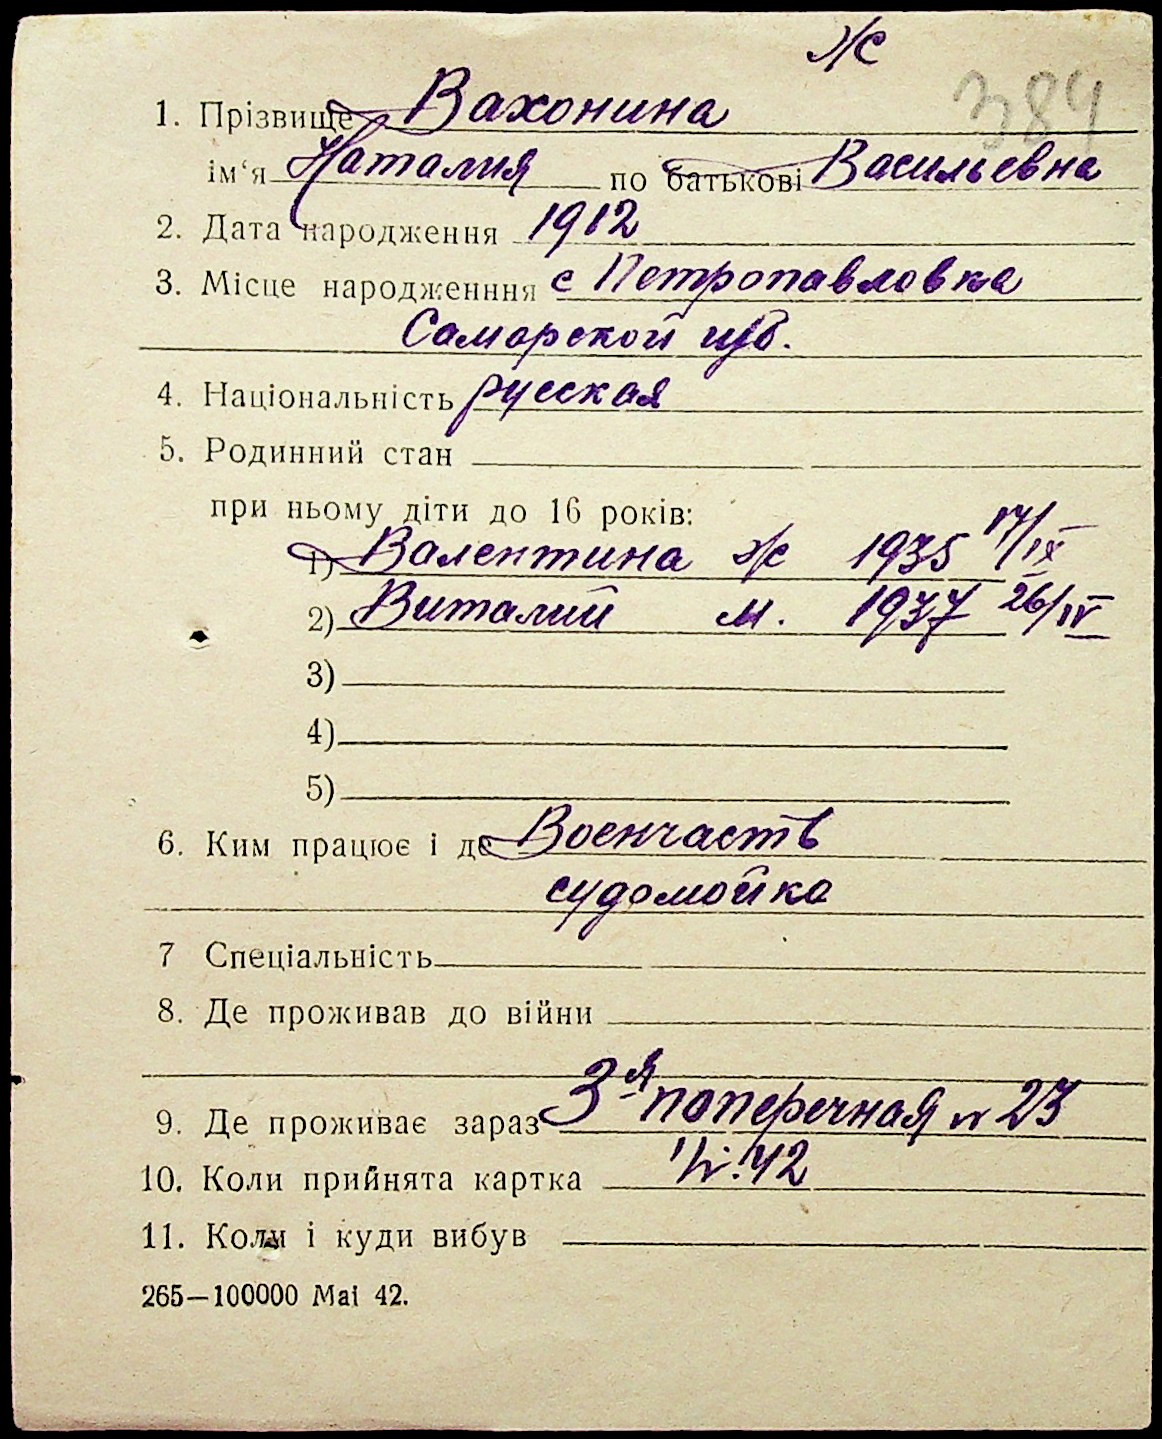 Ж
384
1. Прізвище Вахонина
ім‘я Наталия по батькові Васильевна
2. Дата народження 1912
3. Місце народженння с Петропавловка
Самарской губ.
4. Національність русская
5. Родинний стан
при ньому діти до 16 років:
1) Валентина ж 1935 17/IX
2) Виталий м. 1937 26/IV
3)
4)
5)
6. Ким працює і де Военчасть
судомойка
7 Спеціальність
8. Де проживав до війни
9. Де проживає зараз 3-я поперечная № 23
10. Коли прийнята картка 42
11. Коли і куди вибув
265—100000 Mai 42.